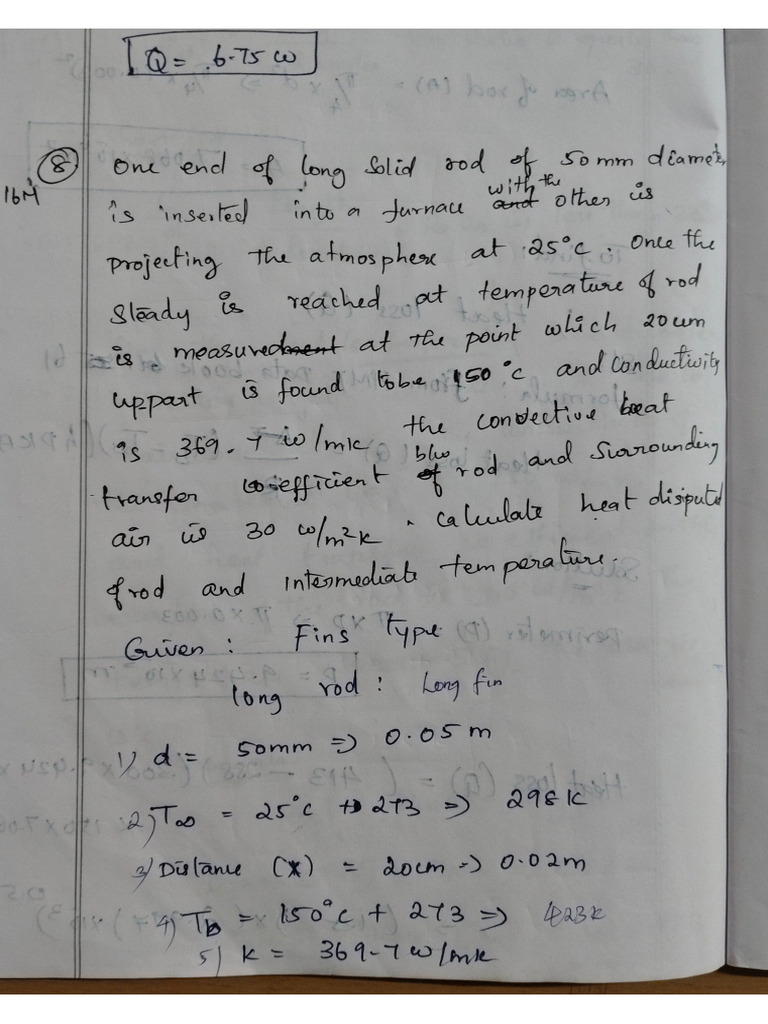 Q = 6.75 w
8 One end of long solid rod of 50mm diamet
16M is inserted into a furnace with the other is
projecting the atmosphere at 25°c. Once the
steady is reached at temperature of rod
is measured at the point which 20 cm
uppart is found tobe 150°c and conductivity
is 369.7 w/mk the convective heat
transfer co-efficient b/w rod and surrounding
air is 30 w/m²k. calculate heat disiputed
of rod and intermediate temperature.
Given: Fins type
long rod: Long fin
1) d = 50mm => 0.05m
2) T∞ = 25°c + 273 => 298k
3) Distance (x) = 20cm => 0.02m
4) Tb = 150°c + 273 => 423k
5) k = 369.7 w/mk